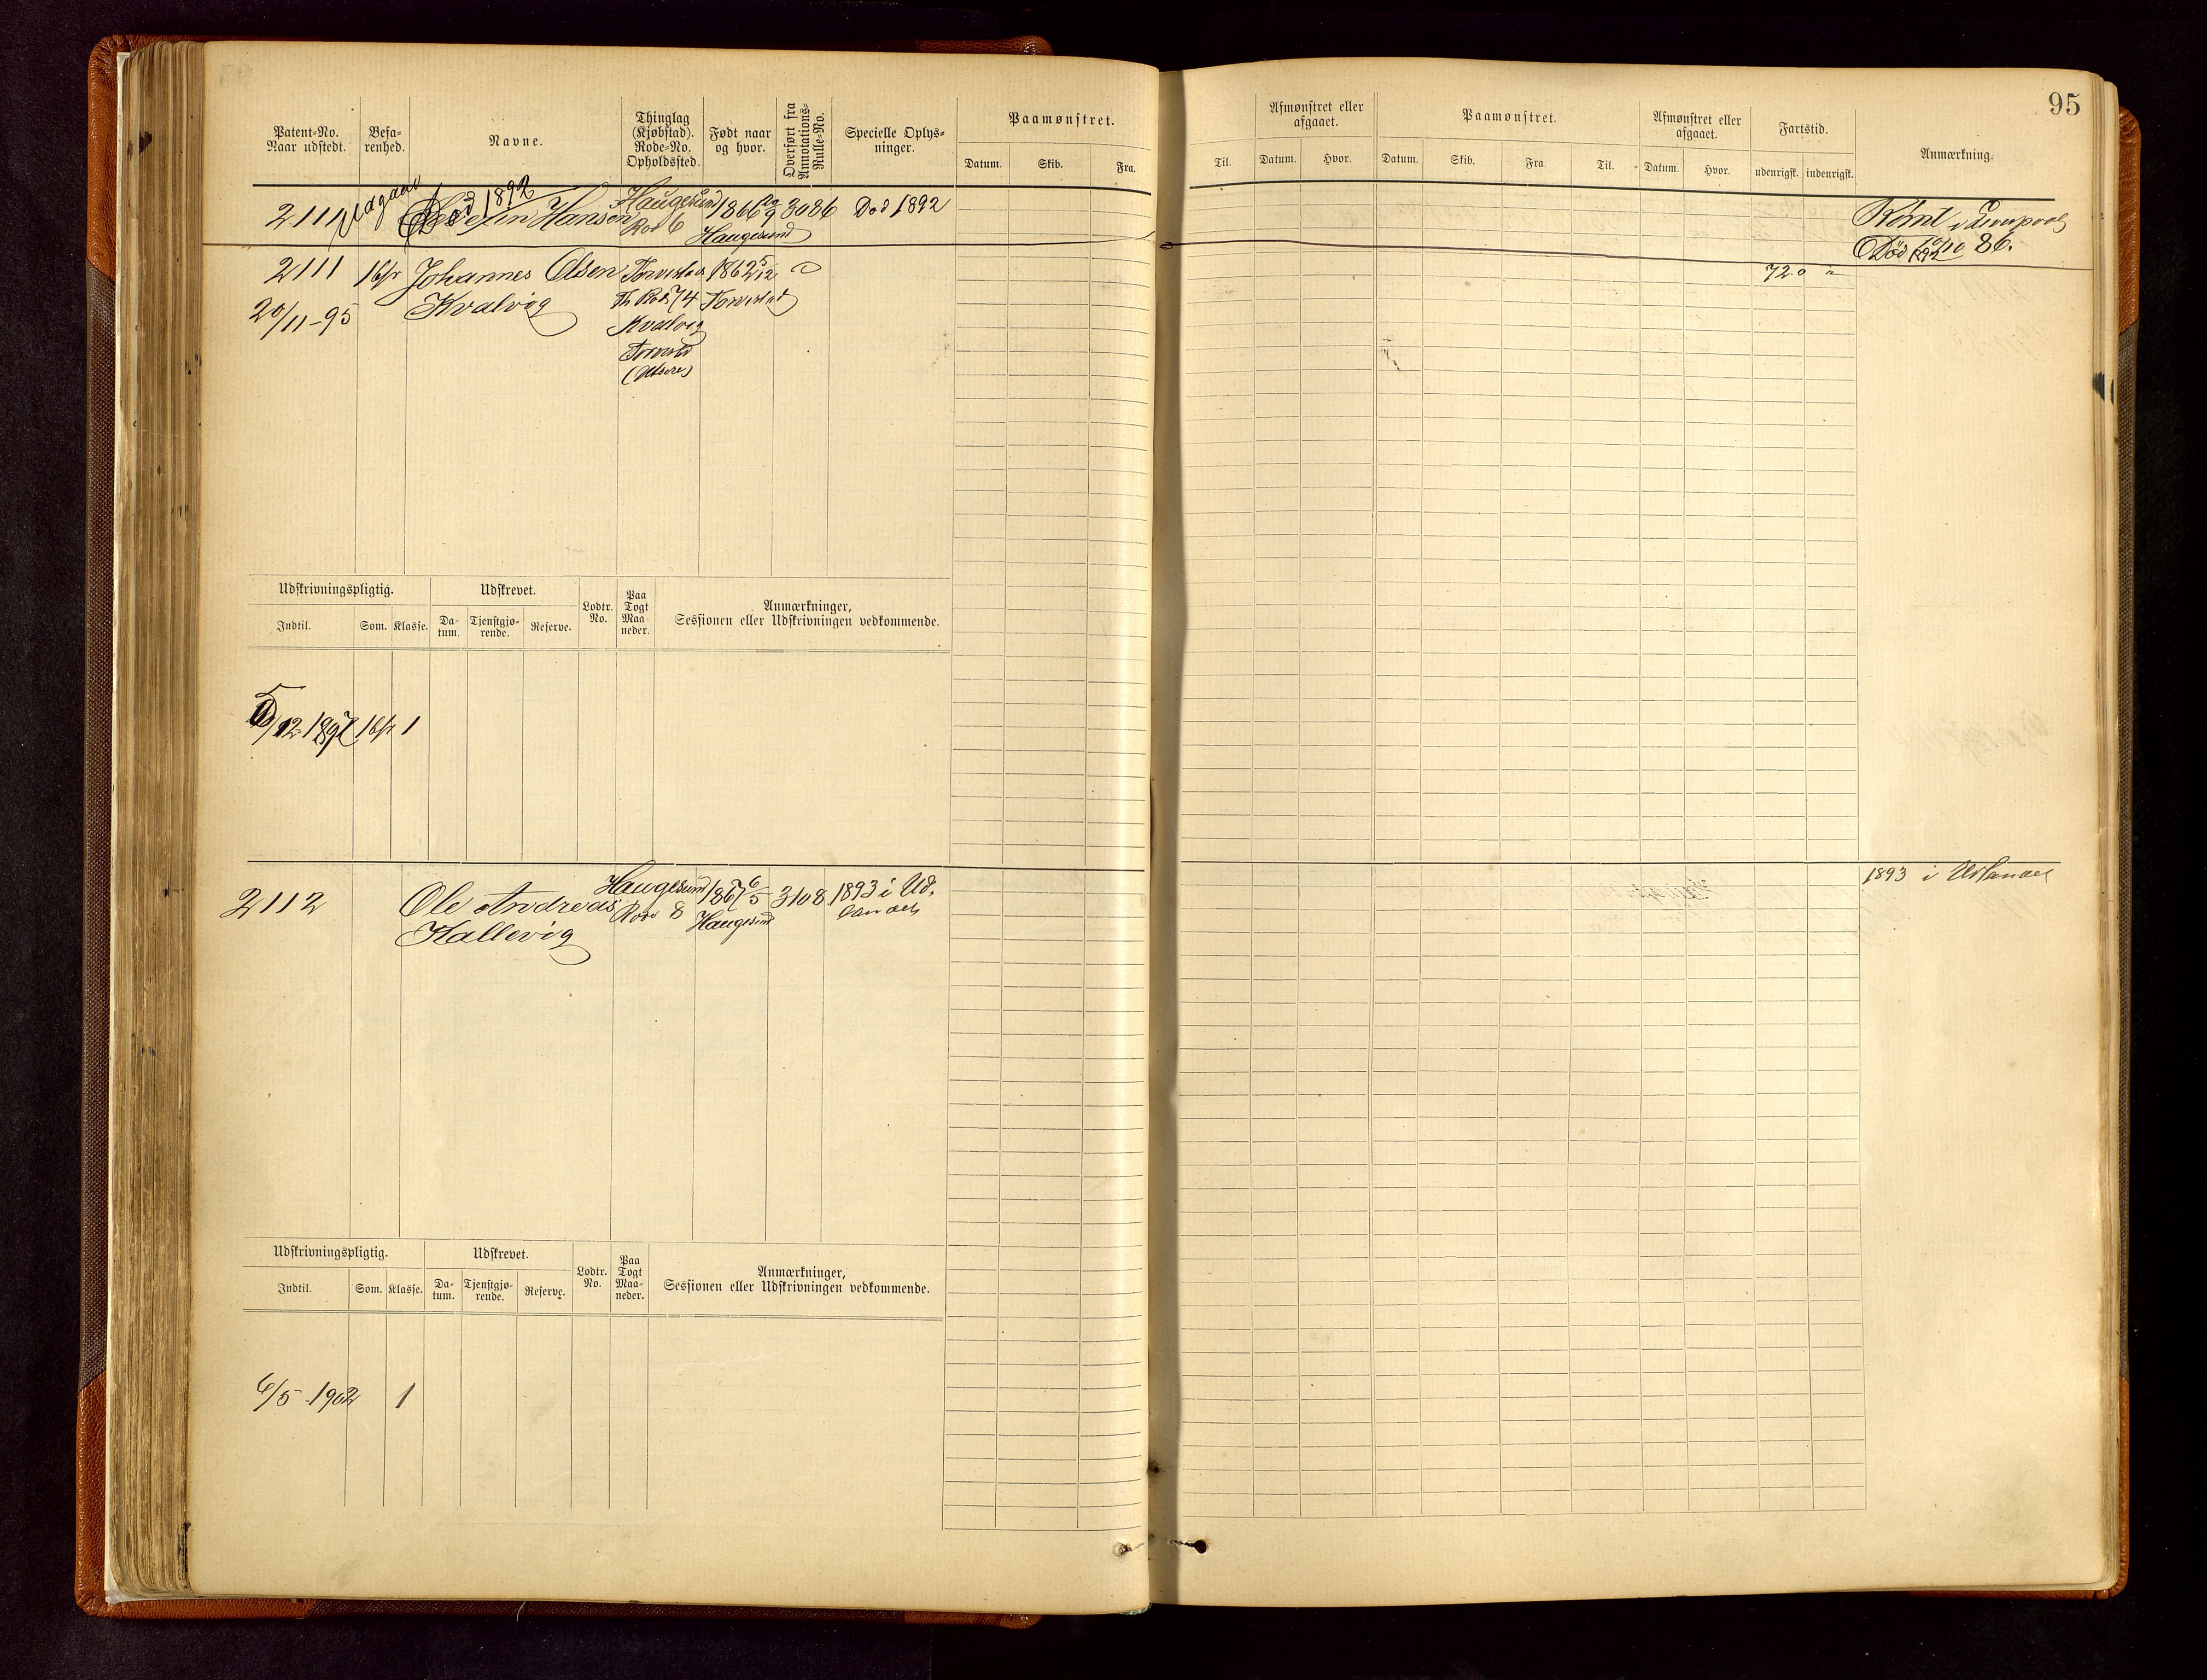 95
Patent-No.
Naar udstedt.
Befa-
renhed.
Navne.
Thinglag
(Kjøbstad).
Rode-No.
Opholdssted.
Født naar
og hvor.
Overført fra
Annotations-
Rulle-No.
Specielle Oplys-
ninger.
Paamønstret.
Datum. Skib. Fra.
Til.
Afmønstret eller
afgaaet.
Datum. Hvor.
Paamønstret.
Datum. Skib. Fra. Til.
Afmønstret eller
afgaaet.
Datum. Hvor.
Fartstid.
udenrigsk. indenrigsk.
Anmærkning.
Udgaar Død 1892
2111 Hansen Haugesund 1866 3086 Død 1892
Rod 6 Haugesund
Rømt i Liverpool
Død 1892 86.
2111 Johannes Olsen Torvestad 1862 5/12
20/11-95 Kvalvig Th. Rod. 74 Torvestad
Kvalvig
Torvestad
72 0
Udskrivningspligtig.
Indtil. Som. Klasse.
Udskrevet.
Da-
tum.
Tjenstgjø-
rende.
Reserve.
Lodtr.
No.
Paa
Togt
Maa-
neder.
Anmærkninger,
Sessionen eller Udskrivningen vedkommende.
/12-1897 1
2112 Ole Andreas Haugesund 1867 6/5 3108 1893 i Ud-
Kallevig Rode 8 Haugesund landet
1893 i Udlandet
Udskrivningspligtig.
Indtil. Som. Klasse.
Udskrevet.
Da-
tum.
Tjenstgjø-
rende.
Reserve.
Lodtr.
No.
Paa
Togt
Maa-
neder.
Anmærkninger,
Sessionen eller Udskrivningen vedkommende.
6/5-1902 1